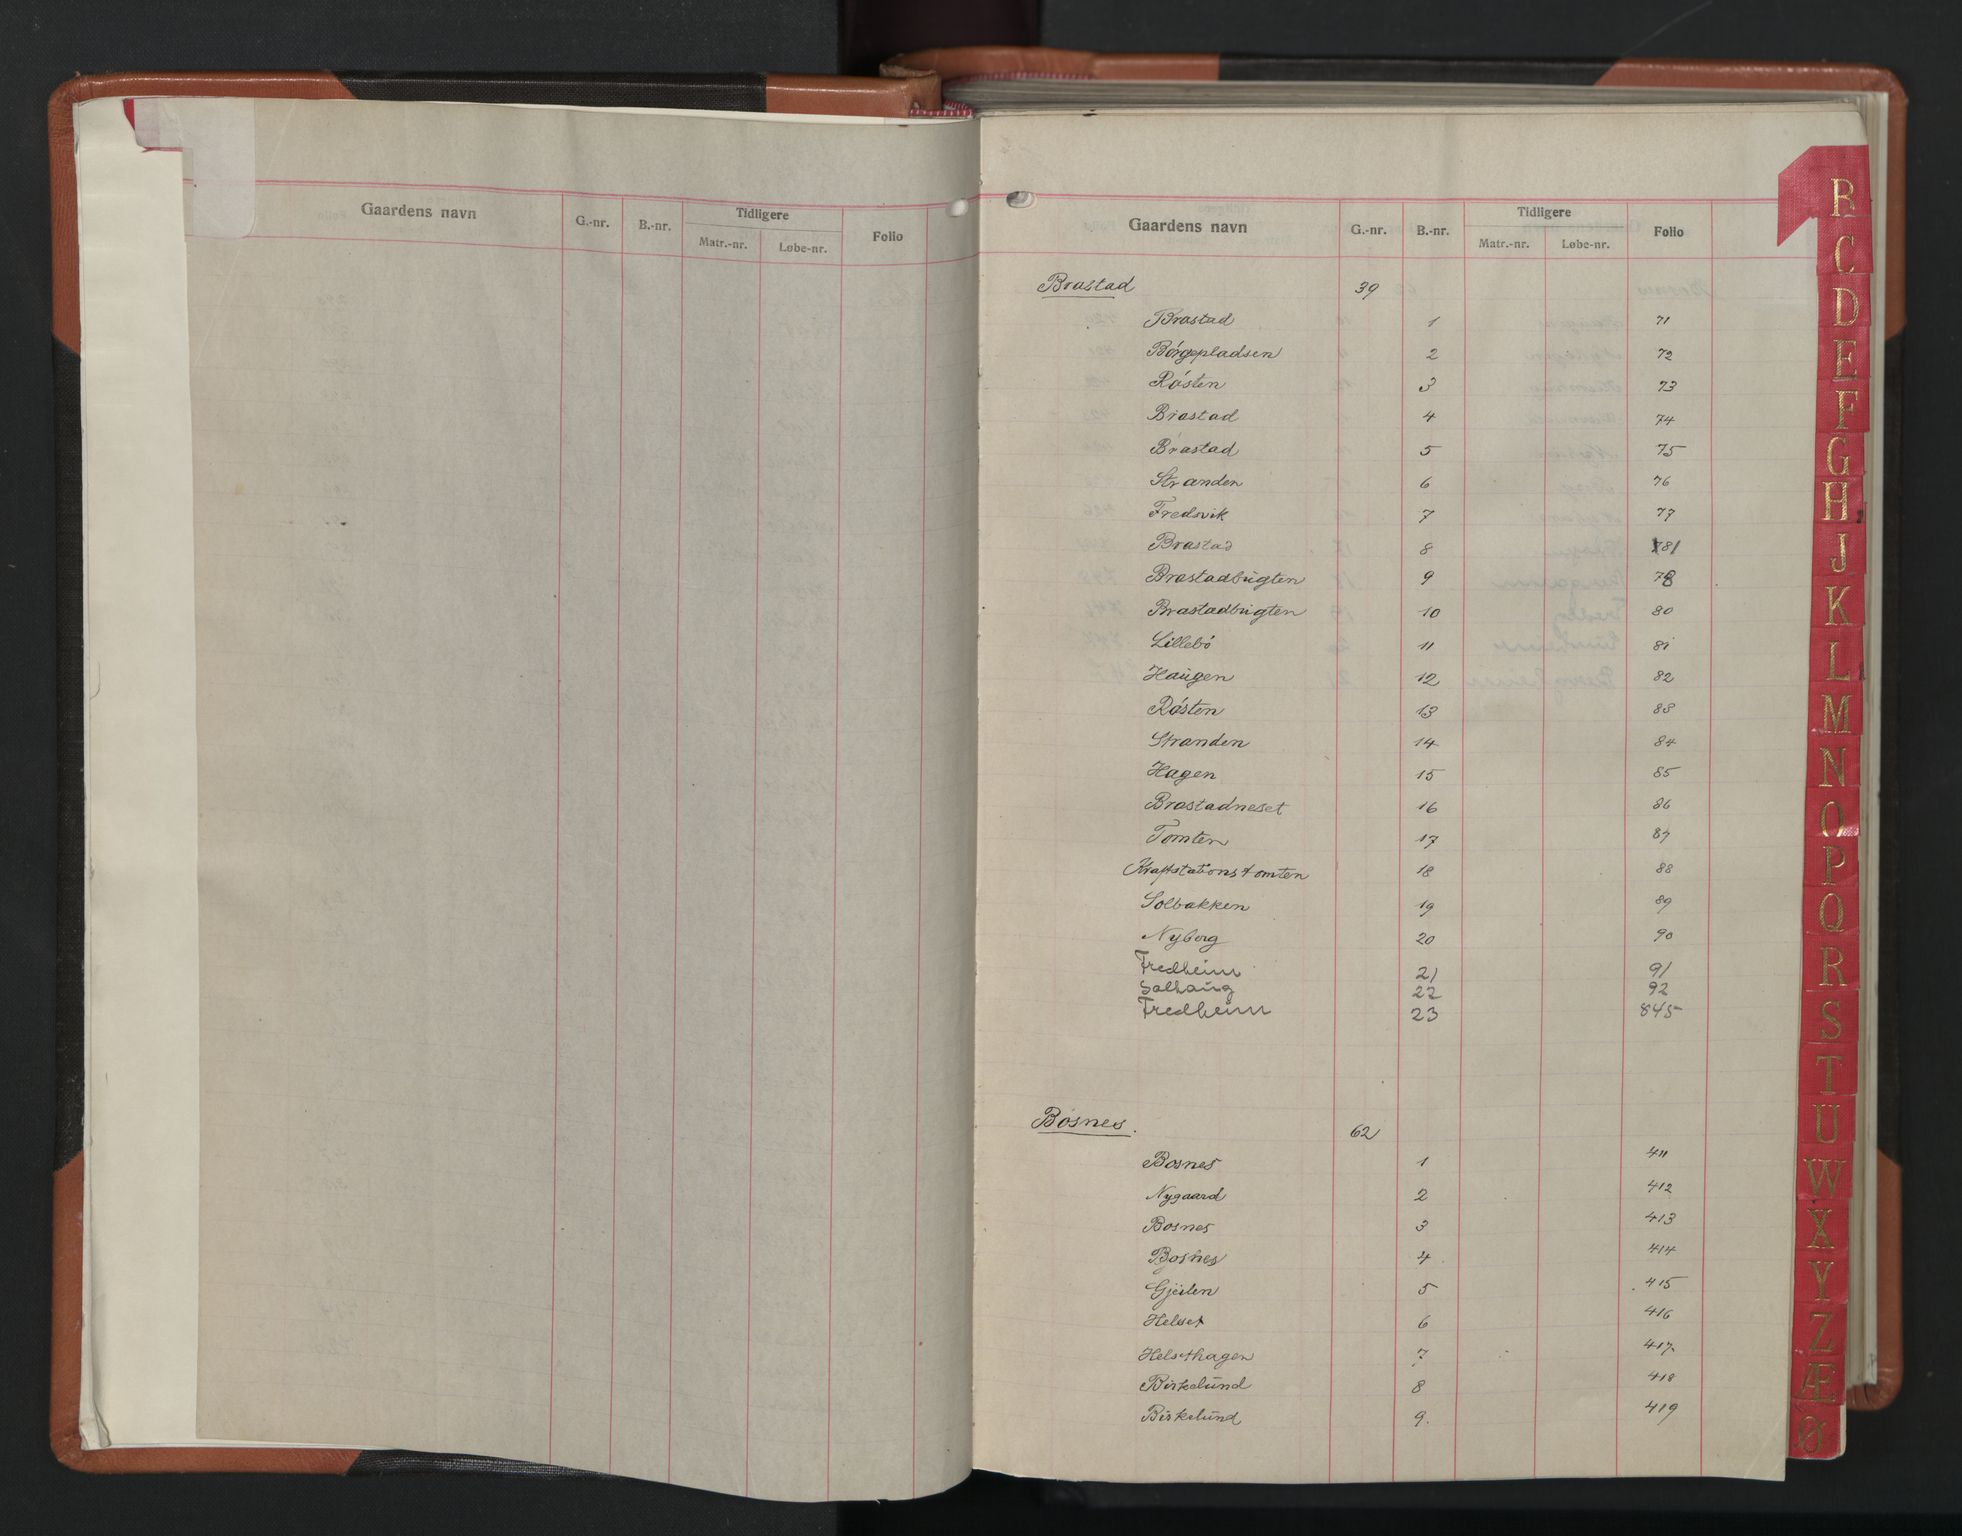 Gaardens navn G.-nr. B.-nr. Tidligere Matr.-nr. Løbe-nr. Folio
Gaardens navn G.-nr. B.-nr. Tidligere Matr.-nr. Løbe-nr. Folio
Brastad 39
Brastad 1 71
Börgepladsen 2 72
Rösten 3 73
Brastad 4 74
Brastad 5 75
Stranden 6 76
Fredsvik 7 77
Brastad 8 781
Brastadbugten 9 78
Brastadbugten 10 80
Lillebö 11 81
Haugen 12 82
Rösten 13 83
Stranden 14 84
Hagen 15 85
Brastadneset 16 86
Tomten 17 87
Kraftstationstomten 18 88
Solbakken 19 89
Nyborg 20 90
Fredheim 21 91
Solhaug 22 92
Fredheim 23 845
Bosnes. 62
Bosnes 1 411
Nygaard 2 412
Bosnes 3 413
Bosnes 4 414
Gjeilen 5 415
Helset 6 416
Helsethagen 7 417
Birkelund 8 418
Birkelund 9. 419
B
C
D
E
F
G
H
J
K
L
M
N
O
P
Q
R
S
T
U
W
X
Y
Z
Æ
Ø